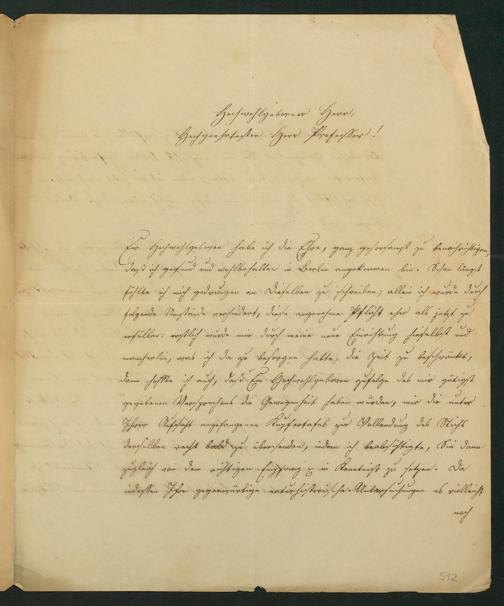 Hochwohlgeborner Herr,
Hochgeehrtester Herr Professor!
Ew Hochwohlgeboren habe ich die Ehre, ganz gehorsamst zu benachrichtigen,
daß ich gesund und wohlbehalten in Berlin angekommen bin. Schon längst
fühlte ich mich gedrungen an Dieselben zu schreiben; allein ich wurde durch
folgende Umstände verhindert, diese angenehme Pflicht eher als jetzt zu
erfüllen. erstlich wurde mir durch meine neue Einrichtung hieselbst und
mancherlei, was ich da zu besorgen hatte, die Zeit zu beschränkt,
dann hoffte ich auch, daß Ew Hochwohlgeboren zufolge des mir gütigst
gegebenen Versprechens die Gewogenheit haben würden, mir die unter
Ihrer Aufsicht angefangenen Kupfertafeln zur Vollendung des Stichs
derselben recht bald zu übersenden, indem ich beabsichtigte, Sie dann
zugleich von dem richtigen Empfang in Kenntniß zu setzen. Da
indessen Ihre gegenwärtige naturhistorische Untersuchungen es vielleicht
noch
512